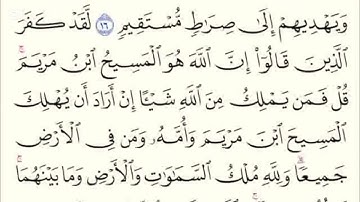 وَيَهۡدِيهِمۡ إِلَىٰ صِرَٰطٖ مُّسۡتَقِيمٖ ١٦ لَّقَدۡ كَفَرَ
ٱلَّذِينَ قَالُوٓاْ إِنَّ ٱللَّهَ هُوَ ٱلۡمَسِيحُ ٱبۡنُ مَرۡيَمَۚ
قُلۡ فَمَن يَمۡلِكُ مِنَ ٱللَّهِ شَيۡـًٔا إِنۡ أَرَادَ أَن يُهۡلِكَ
ٱلۡمَسِيحَ ٱبۡنَ مَرۡيَمَ وَأُمَّهُۥ وَمَن فِي ٱلۡأَرۡضِ
جَمِيعٗاۗ وَلِلَّهِ مُلۡكُ ٱلسَّمَٰوَٰتِ وَٱلۡأَرۡضِ وَمَا بَيۡنَهُمَاۚ